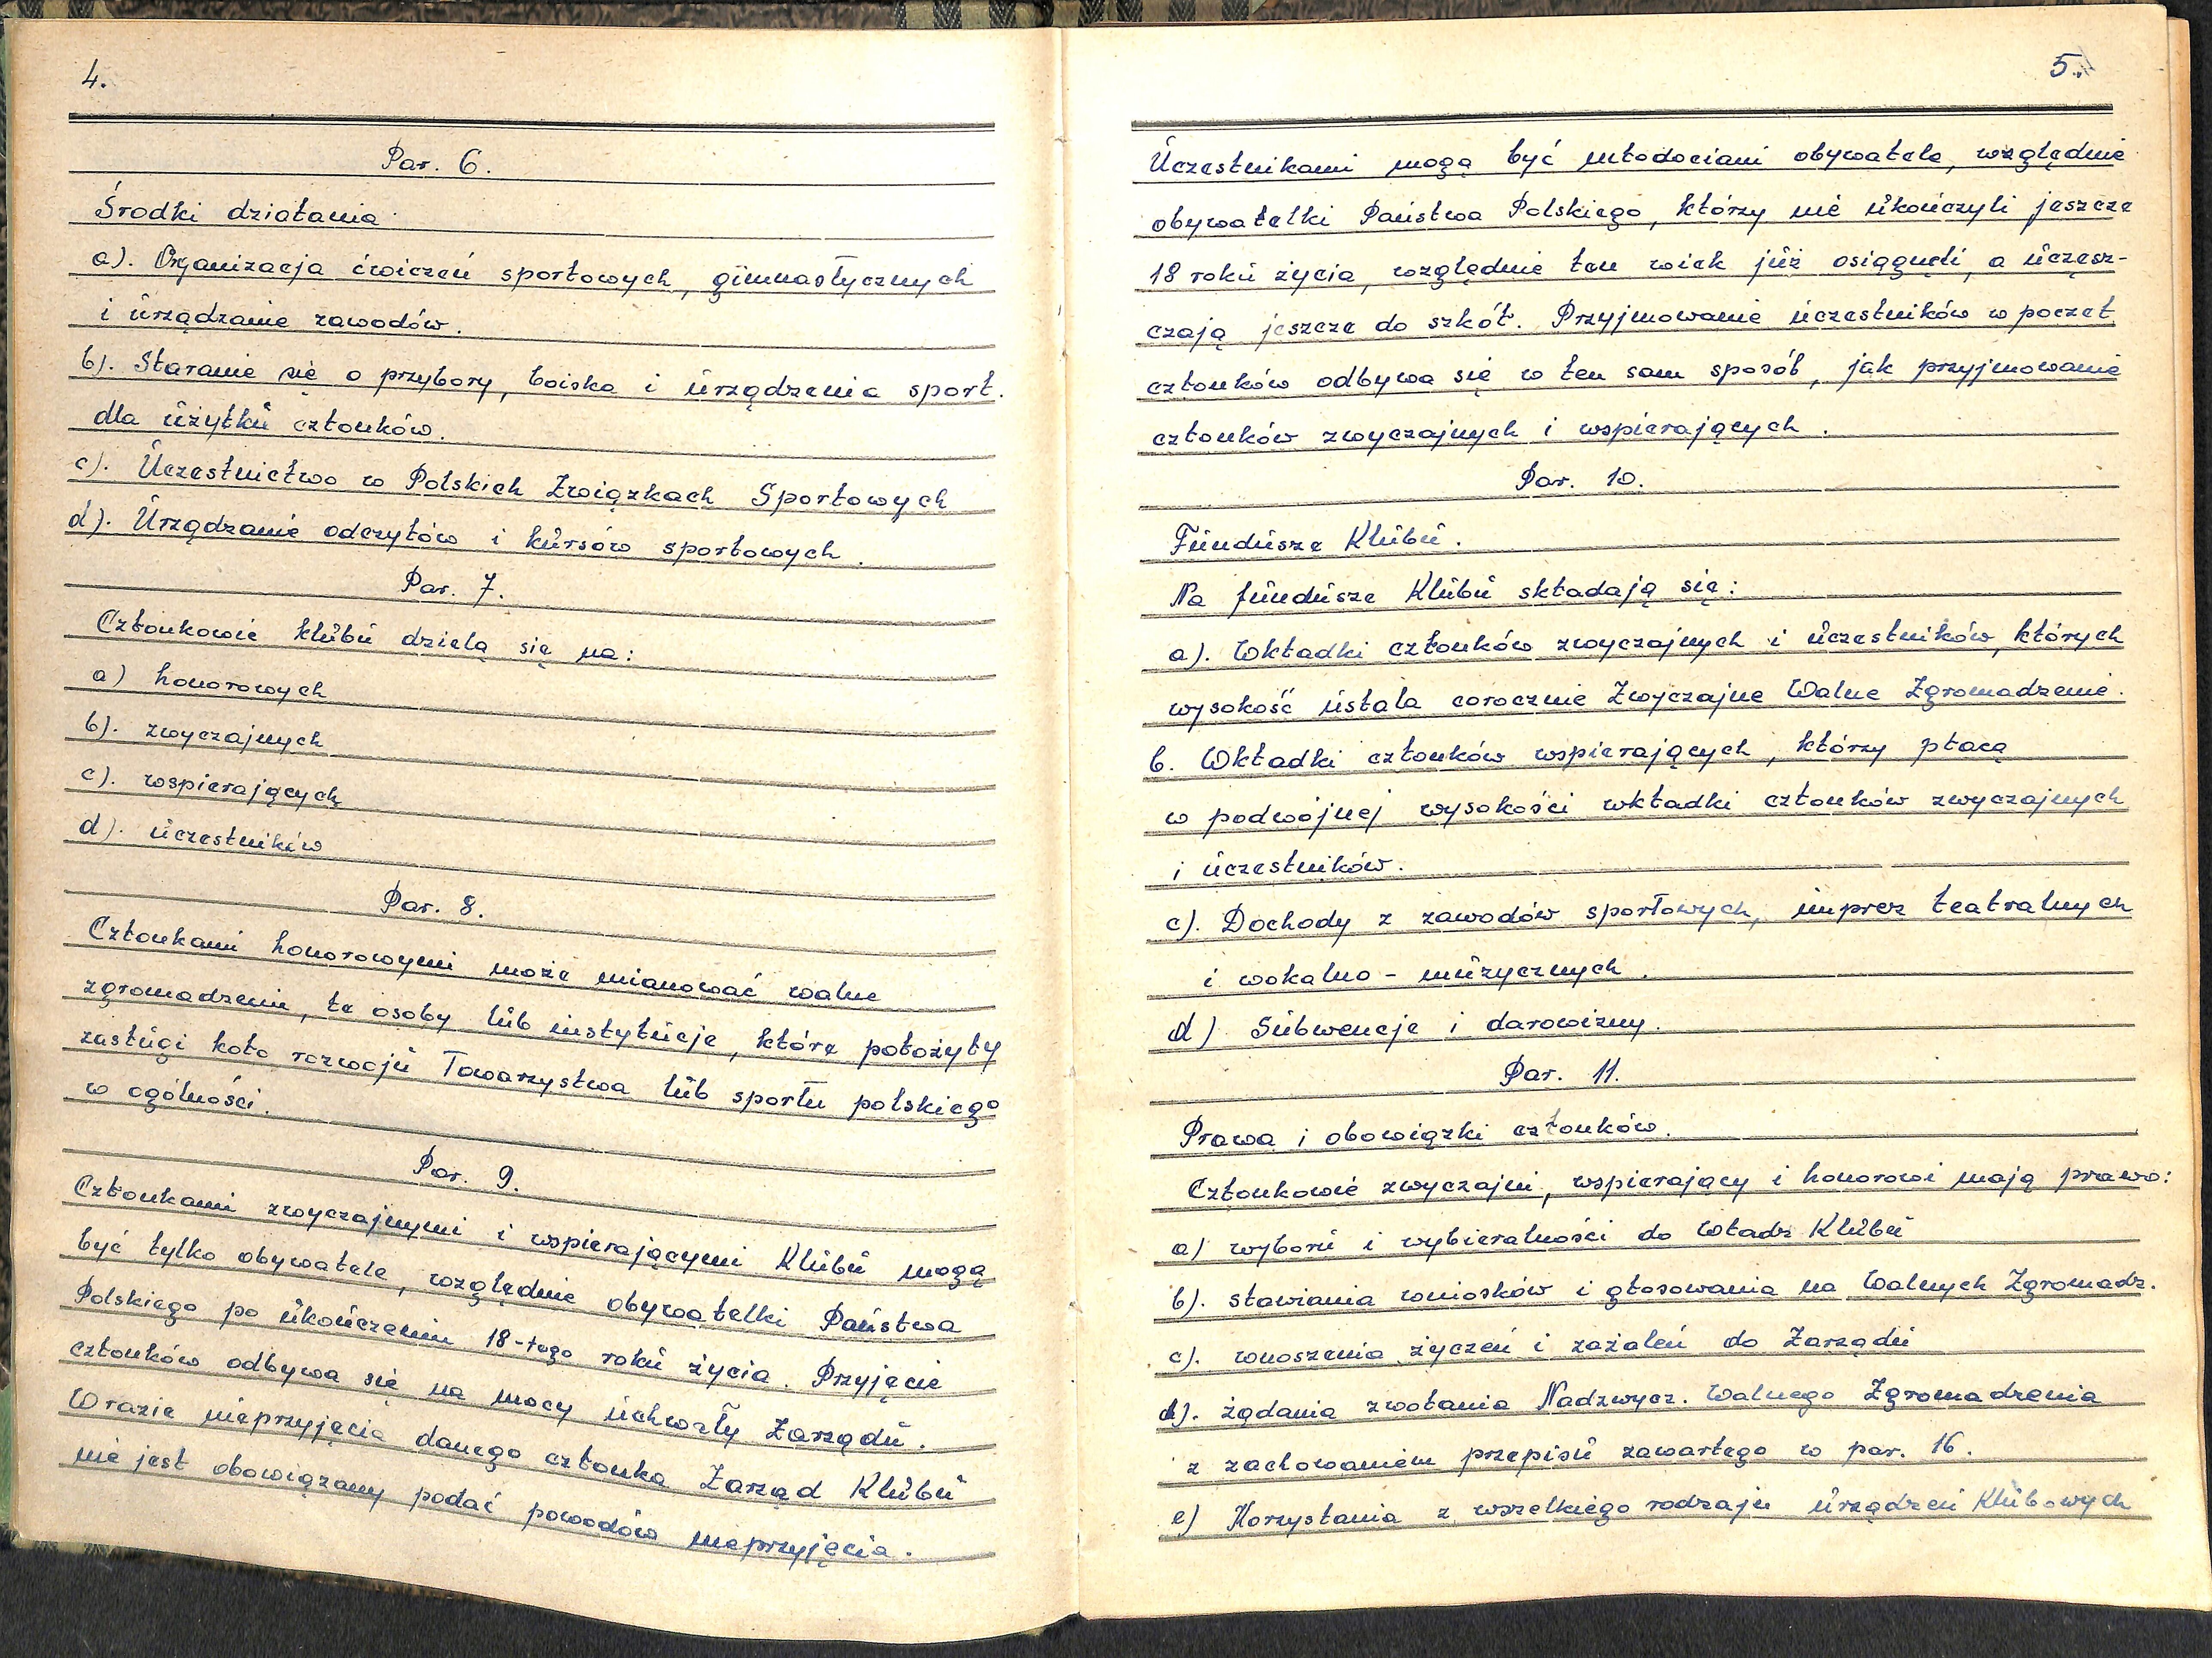 4.
Par. 6.
Środki działania
a). Organizacja ćwiczeń sportowych, gimnastycznych
i urządzanie zawodów.
b). Staranie się o przybory, boiska i urządzenia sport.
dla użytku członków.
c). Uczestnictwo w Polskich Związkach Sportowych
d). Urządzanie odczytów i kursów sportowych.
Par. 7.
Członkowie klubu dzielą się na:
a) honorowych
b). zwyczajnych
c). wspierających
d). uczestników
Par. 8.
Członkami honorowymi może mianować walne
zgromadzenie, te osoby lub instytucje, które położyły
zasługi koło rozwoju Towarzystwa lub sportu polskiego
w ogólności.
Par. 9.
Członkami zwyczajnymi i wspierającymi Klubu mogą
być tylko obywatele, względnie obywatelki Państwa
Polskiego po ukończeniu 18-tego roku życia. Przyjęcie
członków odbywa się na mocy uchwały Zarządu.
W razie nieprzyjęcia danego członka Zarząd Klubu
nie jest obowiązany podać powodów nieprzyjęcia.
5.
Uczestnikami mogą być młodociani obywatele, względnie
obywatelki Państwa Polskiego, którzy nie ukończyli jeszcze
18 roku życia, względnie ten wiek już osiągnęli, a uczęsz-
czają jeszcze do szkół. Przyjmowanie uczestników w poczet
członków odbywa się w ten sam sposób, jak przyjmowanie
członków zwyczajnych i wspierających.
Par. 10.
Fundusze Klubu.
Na fundusze Klubu składają się:
a). Wkładki członków zwyczajnych i uczestników, których
wysokość ustala corocznie Zwyczajne Walne Zgromadzenie.
b. Wkładki członków wspierających, którzy płacą
w podwójnej wysokości wkładki członków zwyczajnych
i uczestników.
c). Dochody z zawodów sportowych, imprez teatralnych
i wokalno - muzycznych.
d) Subwencje i darowizny.
Par. 11.
Prawa i obowiązki członków.
Członkowie zwyczajni, wspierający i honorowi mają prawo:
a) wyboru i wybieralności do Władz Klubu
b). stawiania wniosków i głosowania na Walnych Zgromadz.
c). wnoszenia życzeń i zażaleń do Zarządu
d). żądania zwołania Nadzwycz. Walnego Zgromadzenia
z zachowaniem przepisu zawartego w par. 16.
e) Korzystania z wszelkiego rodzaju urządzeń Klubowych